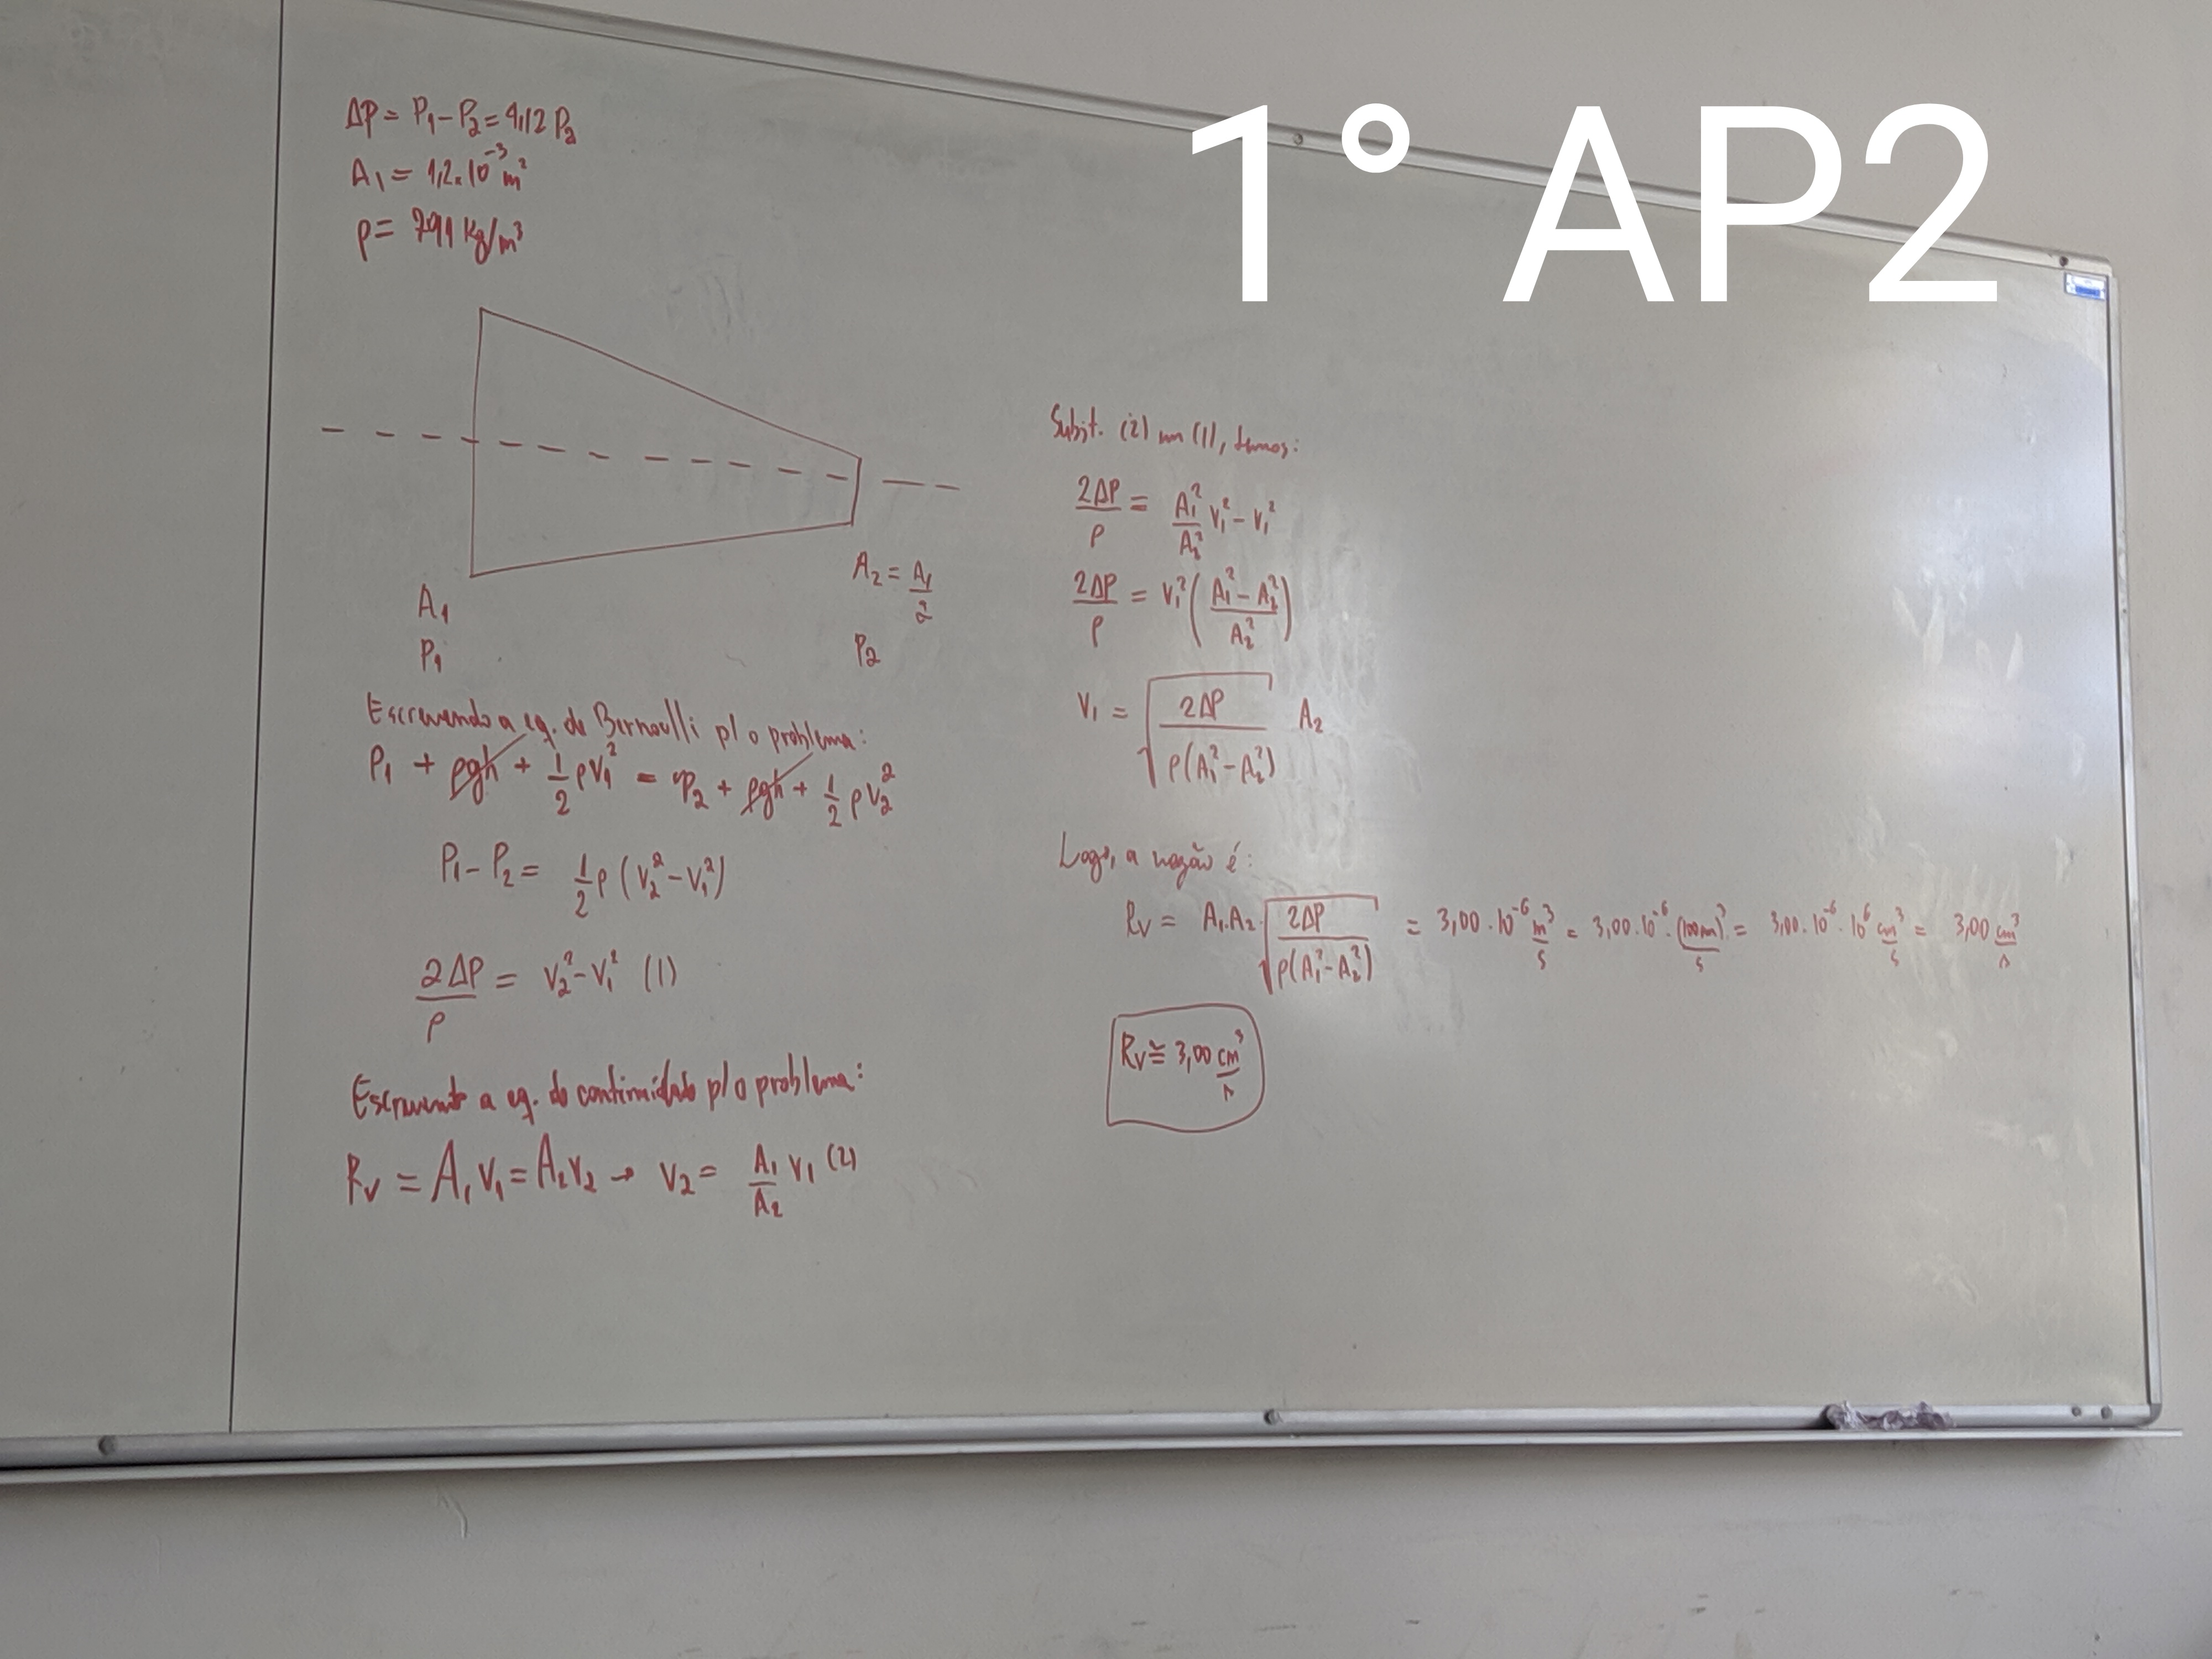 1° AP2
ΔP = P₁ - P₂ = 4,12 Pa
A₁ = 1,2.10⁻³ m²
ρ = 791 kg/m³
A₁
P₁
A₂ = A₁/2
P₂
Escrevendo a eq. de Bernoulli p/ o problema:
P₁ + ρgh + 1/2 ρv₁² = P₂ + ρgh + 1/2 ρv₂²
P₁ - P₂ = 1/2 ρ (v₂² - v₁²)
2ΔP/ρ = v₂² - v₁² (1)
Escrevendo a eq. de continuidade p/ o problema:
Rv = A₁v₁ = A₂v₂ → v₂ = A₁/A₂ v₁ (2)
Subst. (2) em (1), temos:
2ΔP/ρ = A₁²/A₂² v₁² - v₁²
2ΔP/ρ = v₁² (A₁² - A₂²/A₂²)
v₁ = √(2ΔP/ρ(A₁² - A₂²)) A₂
Logo, a vazão é:
Rv = A₁.A₂.√(2ΔP/ρ(A₁² - A₂²)) = 3,00.10⁻⁶ m³/s = 3,00.10⁻⁶.(100cm)³/s = 3,00.10⁻⁶.10⁶ cm³/s = 3,00 cm³/s
Rv ≅ 3,00 cm³/s